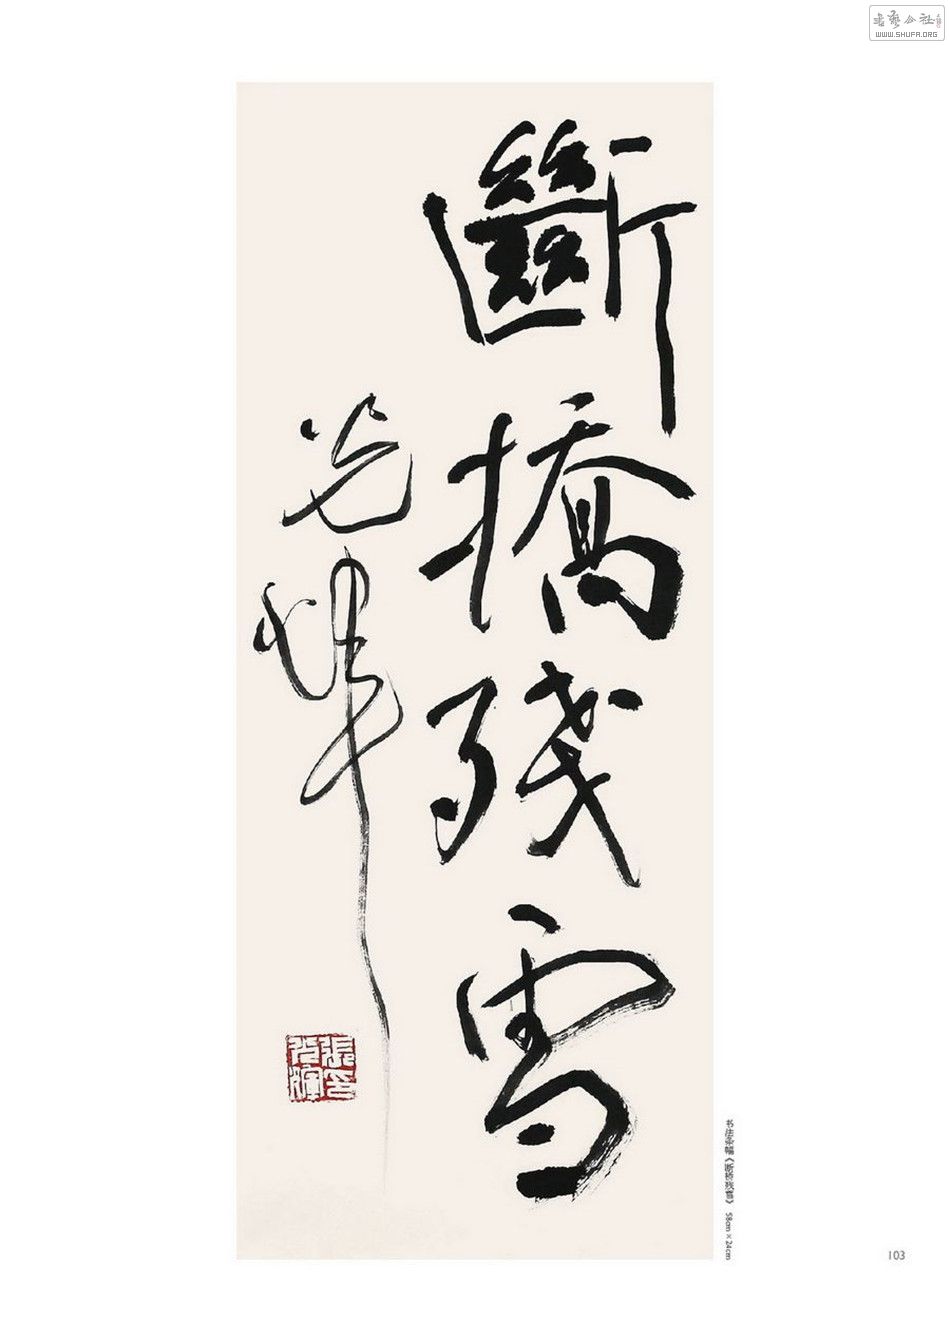 書藝公社
WWW.SHUFA.ORG
斷橋殘雪
光煇
书法条幅《断桥残雪》 58cm×24cm
103